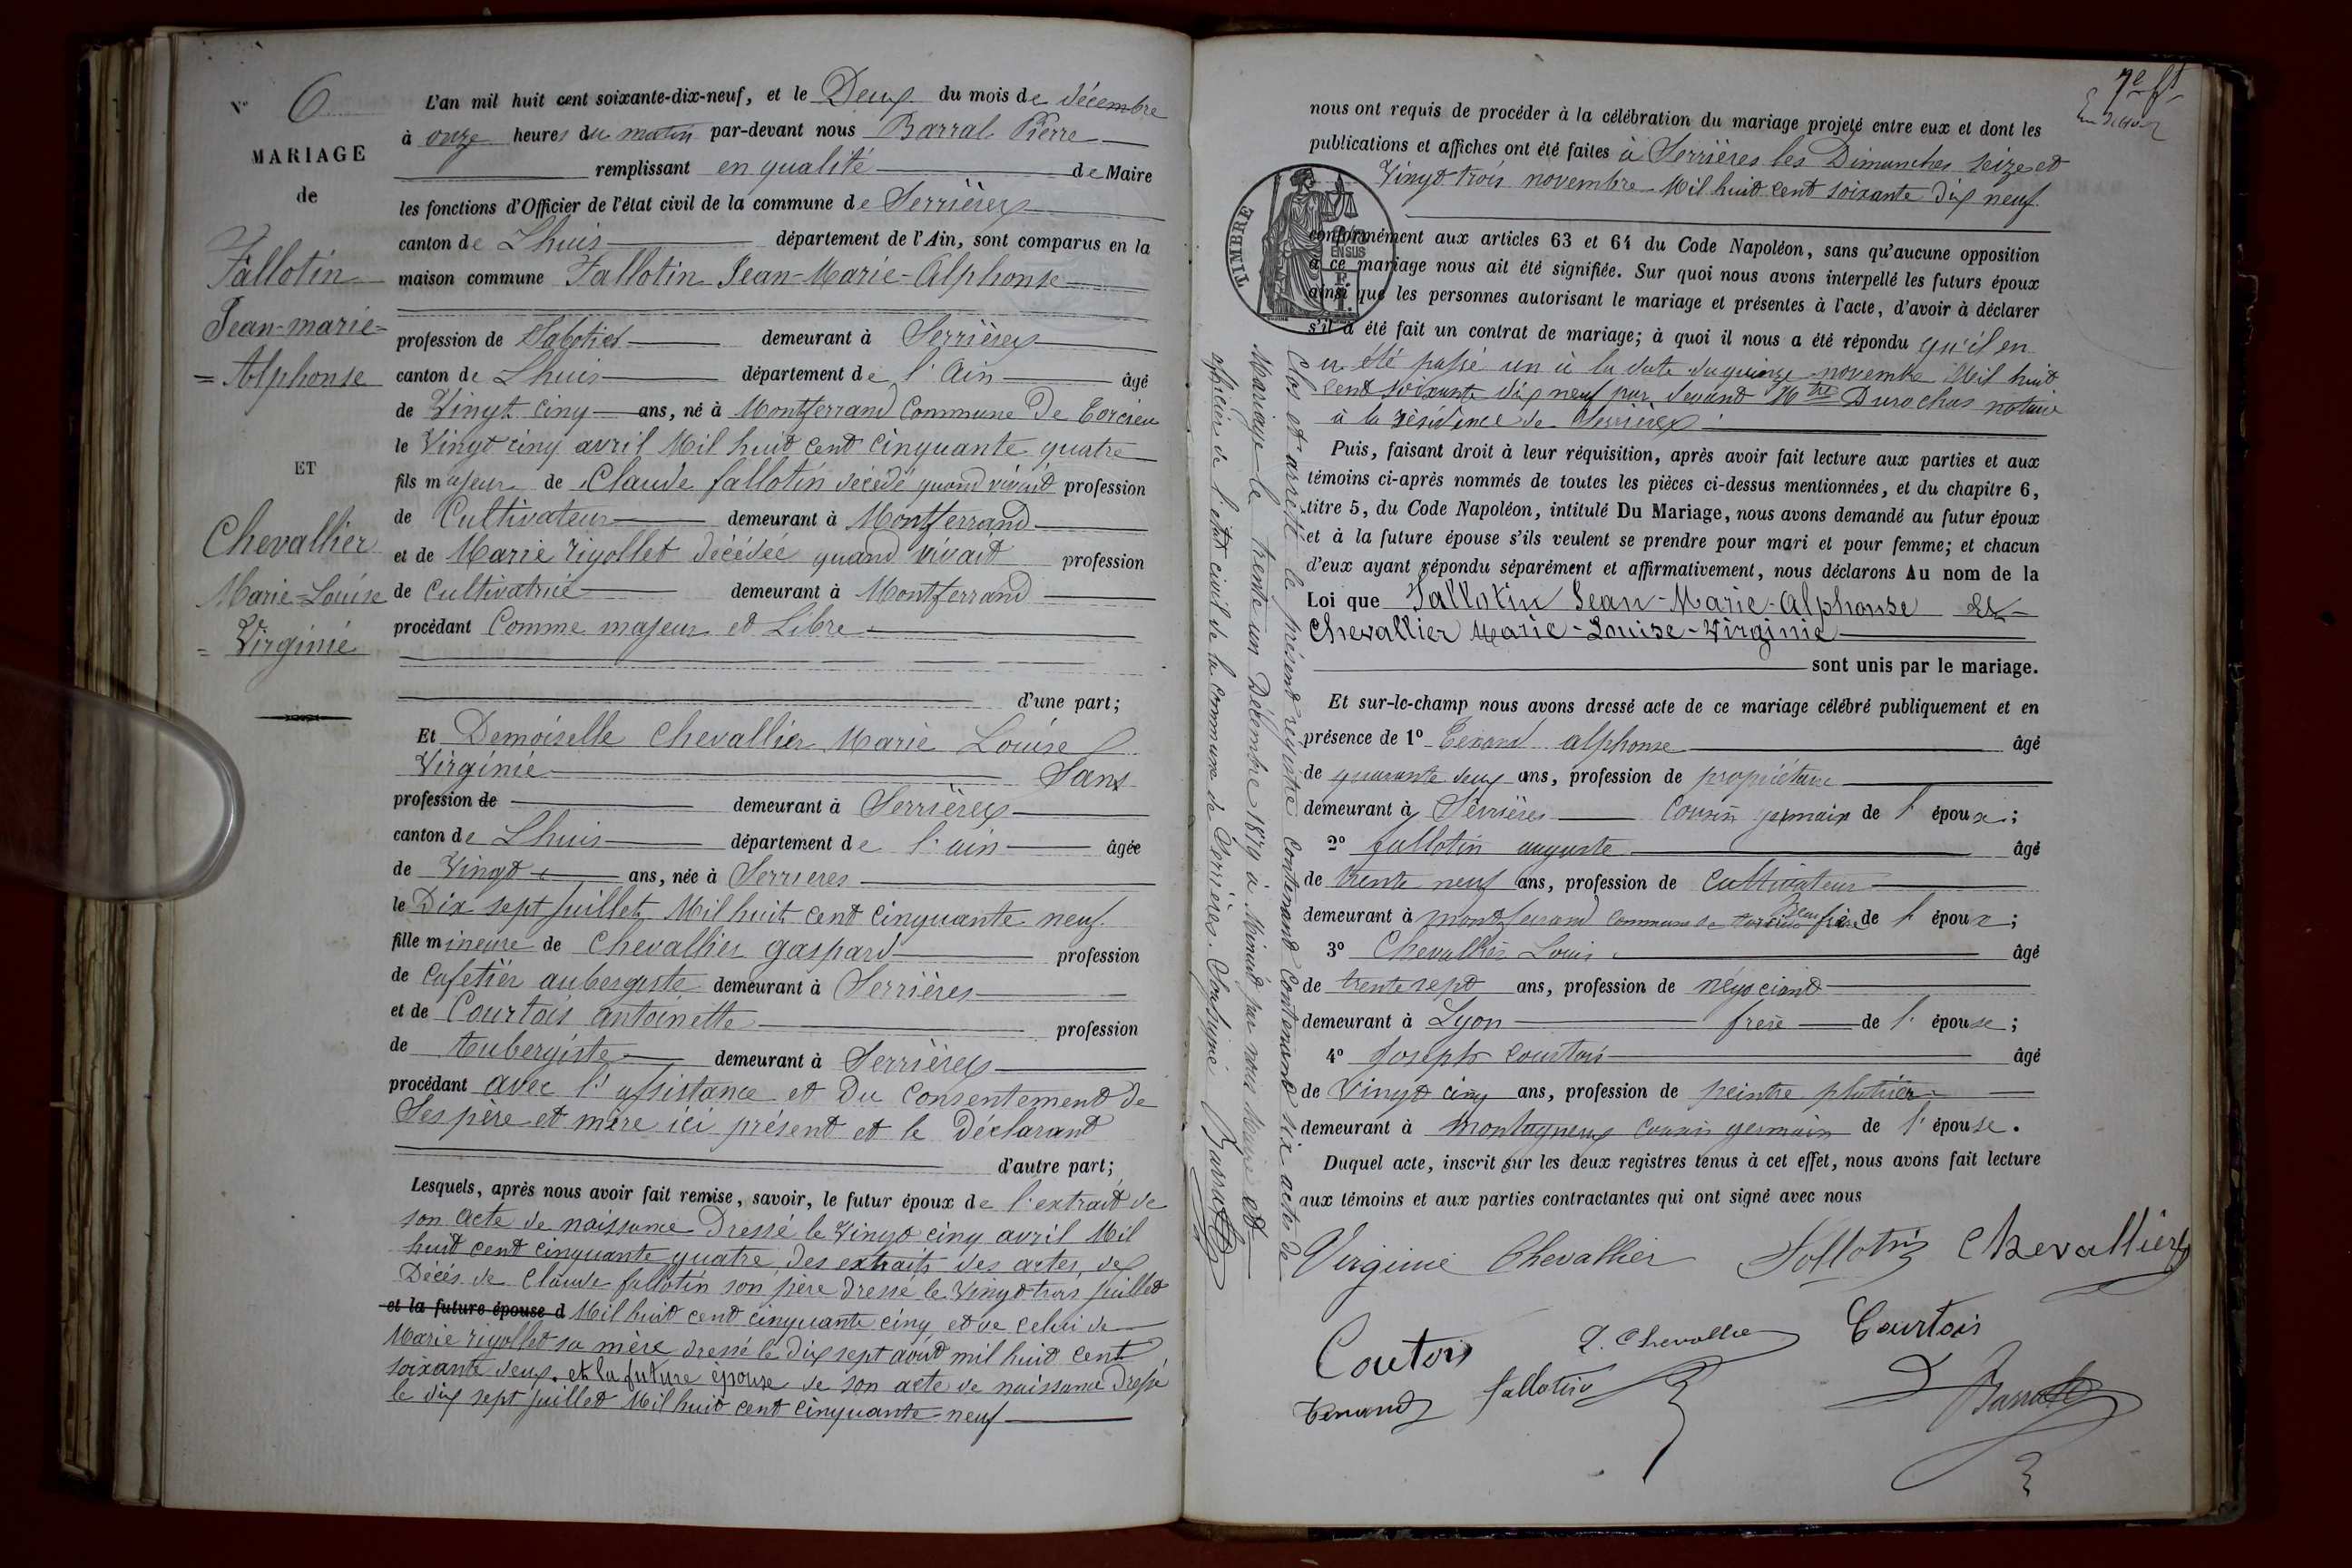 N° 6
MARIAGE
de
Fallotin
Jean-marie-
= Alphonse
ET
Chevallier
Marie=Louise
= Virginie
L'an mil huit cent soixante-dix-neuf, et le Deux du mois de décembre
à onze heures du matin par-devant nous Barral Pierre
remplissant en qualité de Maire
les fonctions d'Officier de l'état civil de la commune de Serrières
canton de Lhuis département de l'Ain, sont comparus en la
maison commune Fallotin Jean-Marie-Alphonse
profession de Sabotier demeurant à Serrières
canton de Lhuis département de l'Ain âgé
de Vingt cinq ans, né à Montferrand Commune De Torcieu
le Vingt cinq avril Mil huit cent cinquante quatre
fils majeur de Claude fallotin décédé quand vivait profession
de Cultivateur demeurant à Montferrand
et de Marie rigollet décédée quand vivait profession
de Cultivatrice demeurant à Montferrand
procédant Comme majeur et Libre
d'une part;
Et Demoiselle Chevallier Marie Louise
Virginie Sans
profession de demeurant à Serrières
canton de Lhuis département de l'ain âgée
de Vingt ans, née à Serrieres
le Dix sept Juillet Mil huit cent cinquante neuf
fille mineure de Chevallier gaspard profession
de Cafetier aubergiste demeurant à Serrières
et de Courtois antoinette profession
de Aubergiste demeurant à Serrières
procédant avec l'assistance et Du Consentement de
Ses père et mère ici présent et le Déclarant
d'autre part;
Lesquels, après nous avoir fait remise, savoir, le futur époux de l'extrait de
son acte de naissance Dressé le Vingt cinq avril Mil
huit cent cinquante quatre, des extraits des actes, de
Décés de Claude fallotin son père dressé le Vingt trois juillet
et la future épouse d Mil huit cent cinquante cinq et de celui de
Marie rigollet sa mère dressé le Dix sept août mil huit cent
soixante deux. et la future épouse de son acte de naissance Dressé
le dix sept juillet Mil huit cent cinquante-neuf
7e ft
nous ont requis de procéder à la célébration du mariage projeté entre eux et dont les
publications et affiches ont été faites à Serrières les Dimanches seize et
Vingt trois novembre Mil huit cent soixante dix neuf
TIMBRE
EN SUS
conformément aux articles 63 et 64 du Code Napoléon, sans qu'aucune opposition
à ce mariage nous ait été signifiée. Sur quoi nous avons interpellé les futurs époux
ainsi que les personnes autorisant le mariage et présentes à l'acte, d'avoir à déclarer
s'il a été fait un contrat de mariage; à quoi il nous a été répondu qu'il en
a été passé un à la date du quinze novembre Mil huit
cent soixante dix neuf par devant Mtre Durochas notaire
à la résidence de Serrières
Puis, faisant droit à leur réquisition, après avoir fait lecture aux parties et aux
témoins ci-après nommés de toutes les pièces ci-dessus mentionnées, et du chapitre 6,
titre 5, du Code Napoléon, intitulé Du Mariage, nous avons demandé au futur époux
et à la future épouse s'ils veulent se prendre pour mari et pour femme; et chacun
d'eux ayant répondu séparément et affirmativement, nous déclarons Au nom de la
Loi que Fallotin Jean-Marie-Alphonse Et
Chevallier Marie-Louise-Virginie
sont unis par le mariage.
Et sur-le-champ nous avons dressé acte de ce mariage célébré publiquement et en
présence de 1° Tenand alphonse âgé
de quarante deux ans, profession de propriétaire
demeurant à Serrières Cousin germain de l'époux;
2° fallotin auguste âgé
de trente neuf ans, profession de Cultivateur
demeurant à montferrand commune de torcieu frère de l'époux;
3° Chevallier Louis âgé
de trente sept ans, profession de négociant
demeurant à Lyon frère de l'épouse;
4° Joseph Courtois âgé
de Vingt cinq ans, profession de peintre platrier
demeurant à Montagneux Cousin germain de l'épouse.
Duquel acte, inscrit sur les deux registres tenus à cet effet, nous avons fait lecture
aux témoins et aux parties contractantes qui ont signé avec nous
Virginie Chevallier Fallotin Chevallier
Coutois L. Chevallier Courtois
Tenand fallotin Barral
Clos et arrêté le présent registre Contenant Contenant six actes de
Mariage le trente un Décembre 1879 à Minuit par nous Maire et
officier de l'état civil de la Commune de Serrières. Soussigné Barral